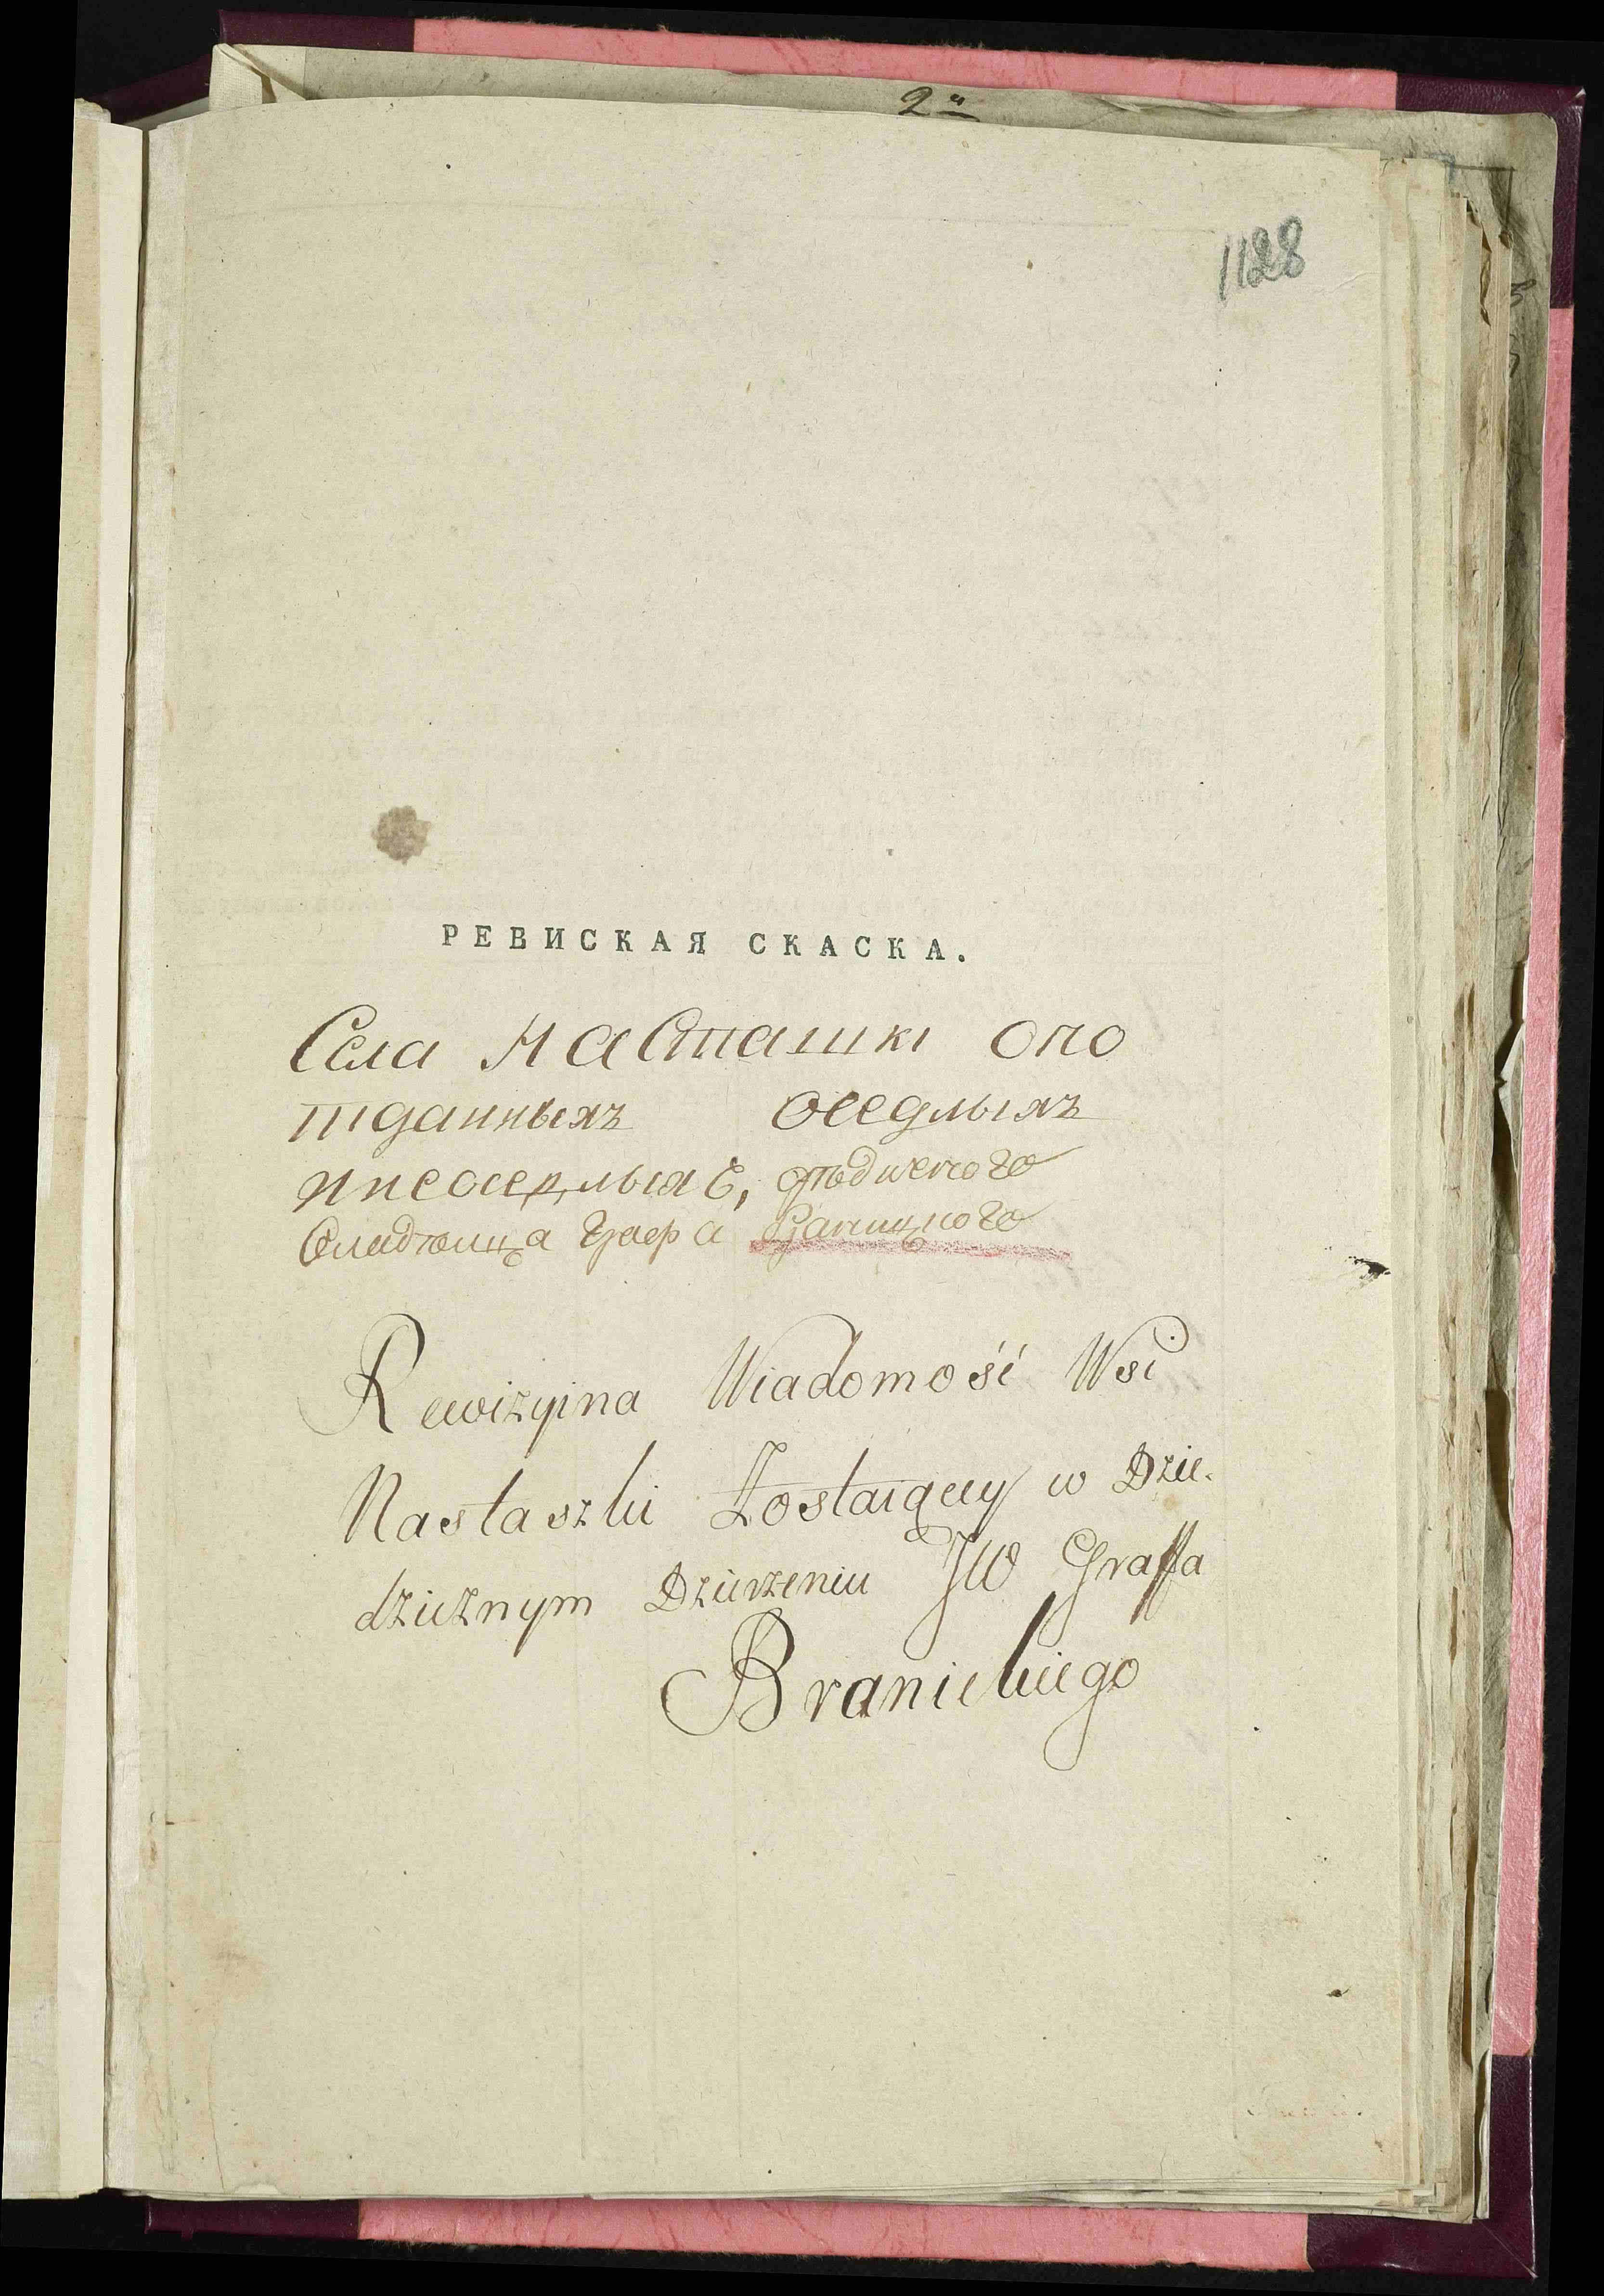 2"
1128
РЕВИСКАЯ СКАСКА.
Села Насташкі опо
тданныхъ оседлыхъ
инеоседлыхъ,
Графа
Rewizyina Wiadomość Wsi
Nastaszki Zostaiącey w Dzie-
dzicznym Dzierzeniu JW Graffa
Branickiego